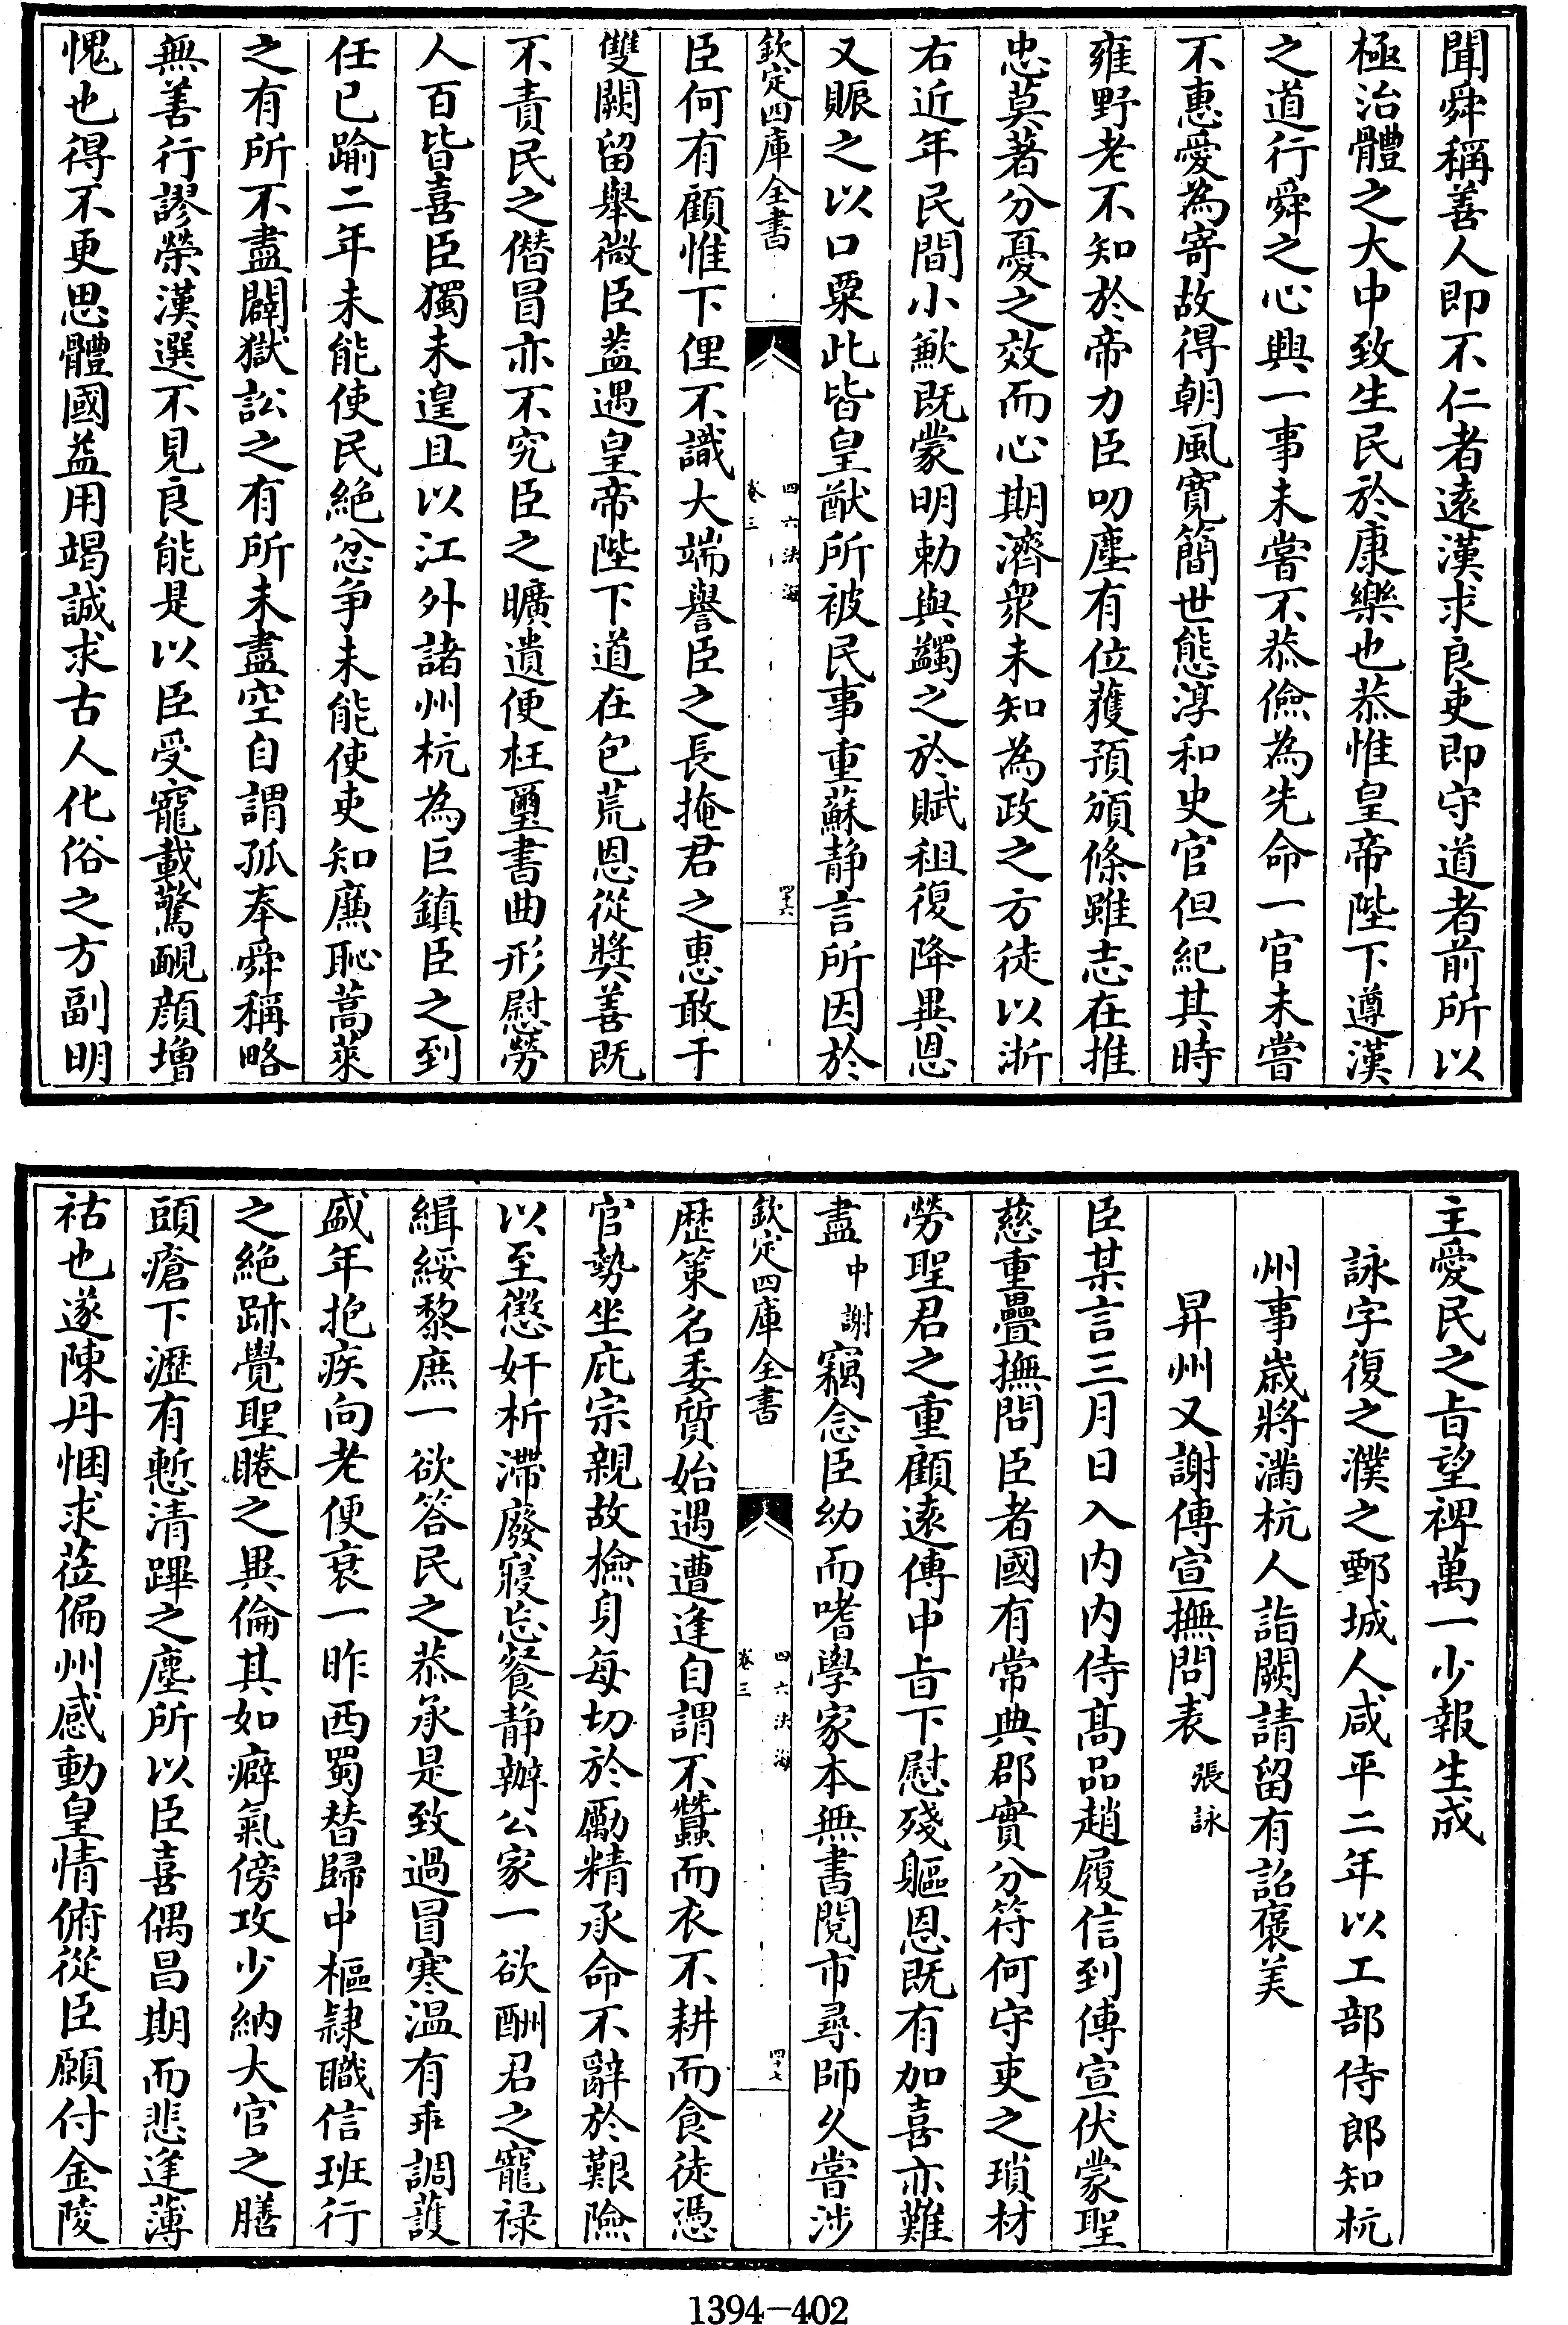 聞舜稱善人即不仁者遠漢求良吏即守道者前所以
極治體之大中致生民於康樂也恭惟皇帝陛下遵漢
之道行舜之心興一事未嘗不恭儉為先命一官未嘗
不惠愛為寄故得朝風寛簡世態淳和史官但紀其時
雍野老不知於帝力臣叨塵有位獲預頒條雖志在推
忠莫著分憂之效而心期濟衆未知為政之方徒以浙
右近年民間小歉既蒙明勅與蠲之於賦租復降異恩
又賑之以口粟此皆皇猷所被民事重蘇静言所因於
欽定四庫全書
四六法海
卷三
四十六
臣何有顧惟下俚不識大端譽臣之長掩君之惠敢干
雙闕留舉微臣葢遇皇帝陛下道在包荒恩從奬善既
不責民之僭冒亦不究臣之曠遺便枉璽書曲形慰勞
人百皆喜臣獨未遑且以江外諸州杭為巨鎮臣之到
任已踰二年未能使民絶忿争未能使吏知廉恥蒿萊
之有所不盡闢獄訟之有所未盡空自謂孤奉舜稱略
無善行謬榮漢選不見良能是以臣受寵載驚靦顔增
愧也得不更思體國益用竭誠求古人化俗之方副明
主愛民之㫖望裨萬一少報生成
詠字復之濮之鄄城人咸平二年以工部侍郎知杭
州事嵗將滿杭人詣闕請留有詔褒美
昇州又謝傳宣撫問表 張詠
臣某言三月日入内内侍髙品趙履信到傳宣伏蒙聖
慈重疊撫問臣者國有常典郡實分符何守吏之瑣材
勞聖君之重顧遠傳中㫖下慰殘軀恩既有加喜亦難
盡 中謝 竊念臣幼而嗜學家本無書閲市尋師久嘗涉
欽定四庫全書
四六法海
卷三
四十七
歴策名委質始遇遭逢自謂不蠶而衣不耕而食徒憑
官勢坐庇宗親故檢身每切於勵精承命不辭於艱險
以至懲奸析滯廢寢忘餐静辦公家一欲酬君之寵禄
緝綏黎庶一欲答民之恭承是致過冒寒温有乖調護
盛年抱疾向老便衰一昨西蜀替歸中樞𨽻職信班行
之絶跡覺聖睠之異倫其如癖氣傍攻少納大官之膳
頭瘡下瀝有慙清蹕之塵所以臣喜偶昌期而悲逢薄
祜也遂陳丹悃求莅偏州感動皇情俯從臣願付金陵
1394-402